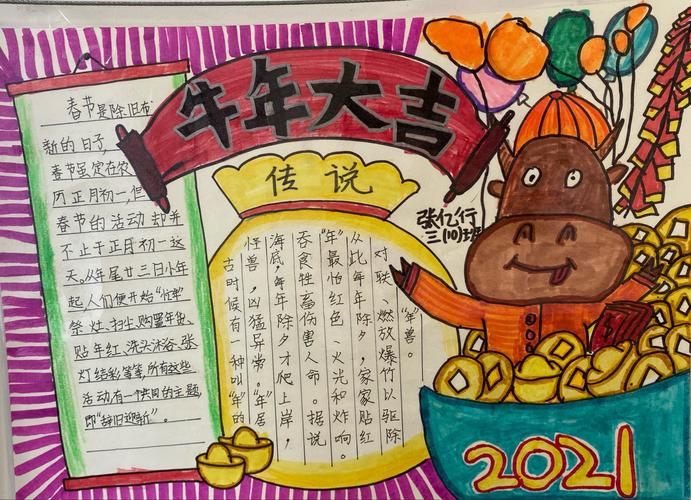 牛年大吉
春节是除旧布
新的日子,
春节虽定在农
历正月初一,但
春节的活动却并
不止于正月初一这
天。从年尾廿三日小年
起,人们便开始“忙年”
祭灶、扫尘、购置年货、
贴年红、洗头沐浴、张
灯结彩等等,所有这些
活动有一个共同的主题,
即“辞旧迎新”。
传说
古时候有一种叫“年”的
怪兽,凶猛异常。“年”居
海底,年年除夕才爬上岸,
吞食牲畜伤害人命。据说
“年”最怕红色、火光和炸响。
从此年年除夕,家家贴红
对联、燃放爆竹以驱除
“年”兽。
张亿行
三(10)班
2021